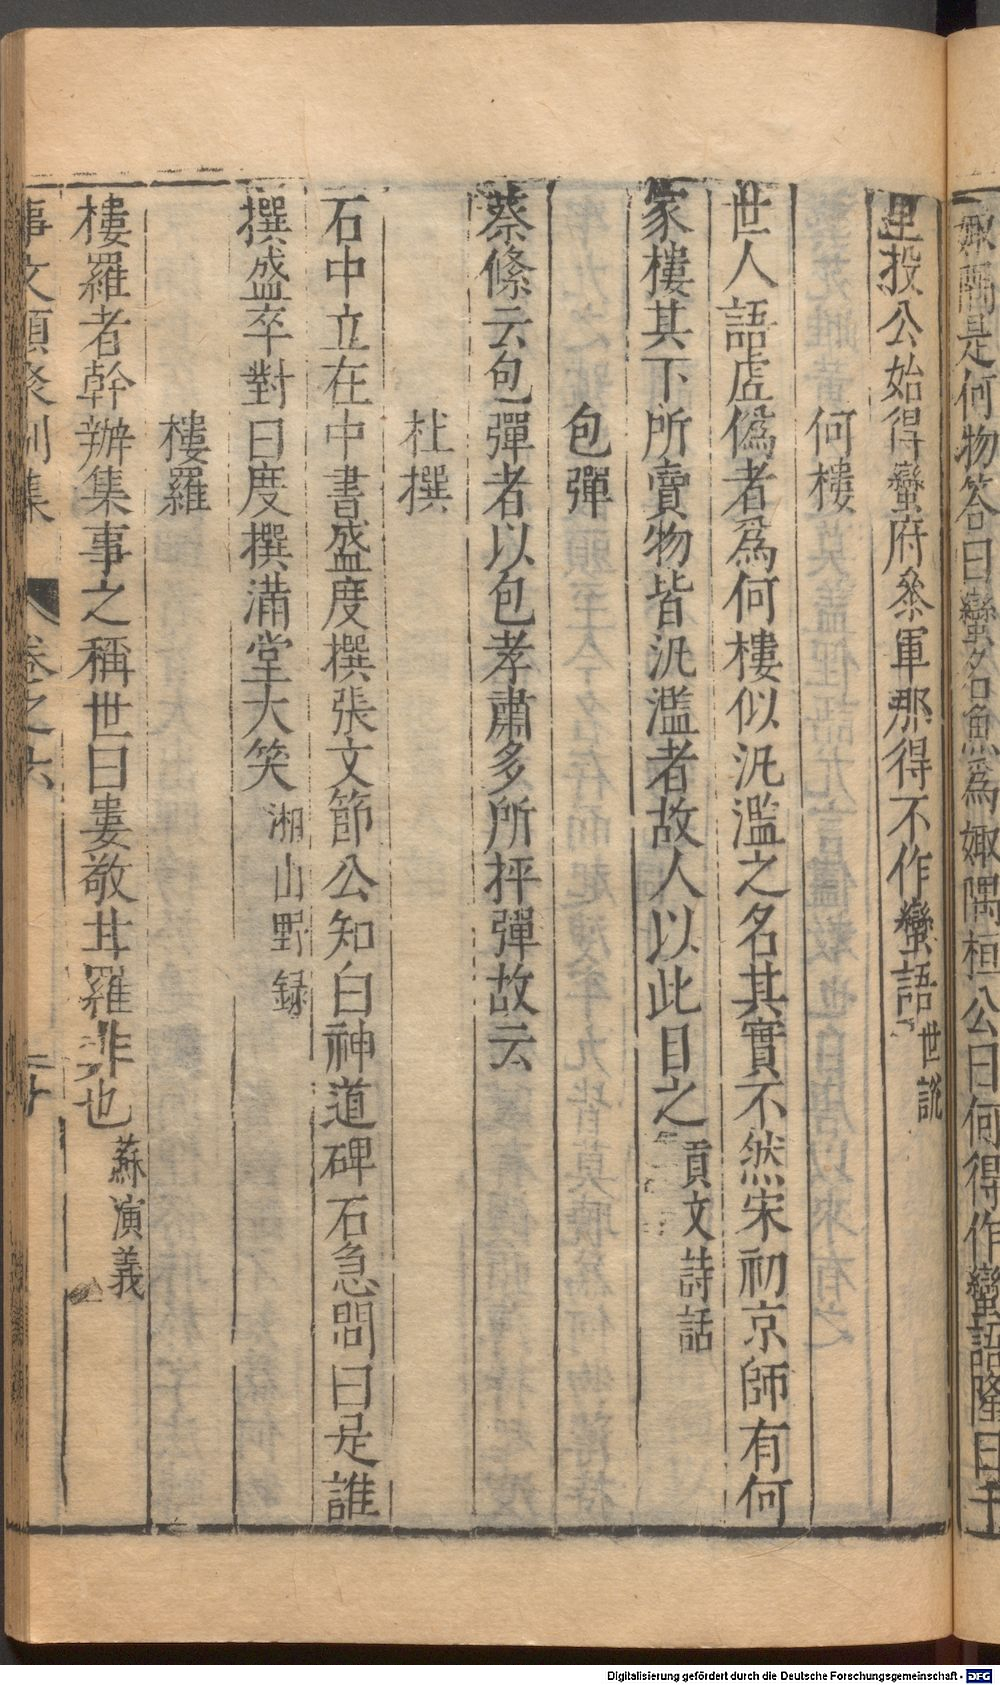 娵隅是何物答曰蠻名魚爲娵隅桓公曰何得作蠻語隆曰千
里投公始得蠻府叅軍那得不作蠻語世説
何樓
世人語虛僞者爲何樓似汎濫之名其實不然宋初京師有何
家樓其下所賣物皆汎濫者故人以此目之貢文詩話
包彈
蔡絛云包彈者以包孝肅多所抨彈故云
杜撰
石中立在中書盛度撰張文節公知白神道碑石急問曰是誰
撰盛卒對曰度撰滿堂大笑湘山野録
樓羅
樓羅者幹辦集事之稱世曰婁敬甘羅非也蘇演義
事文類聚別集 卷之六 二十
Digitalisierung gefördert durch die Deutsche Forschungsgemeinschaft - DFG